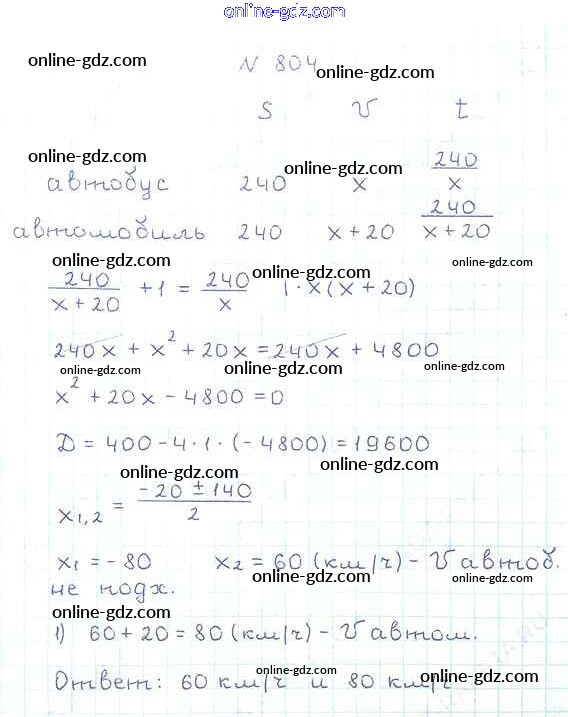 online-gdz.com
№ 804
online-gdz.com online-gdz.com
S V t
online-gdz.com online-gdz.com
автобус 240 x 240/x
online-gdz.com
автомобиль 240 x + 20 240/(x + 20)
online-gdz.com online-gdz.com online-gdz.com
240/(x + 20) + 1 = 240/x | · x(x + 20)
online-gdz.com online-gdz.com
240x + x² + 20x = 240x + 4800
online-gdz.com online-gdz.com online-gdz.com
x² + 20x - 4800 = 0
Д = 400 - 4 · 1 · (- 4800) = 19600
online-gdz.com online-gdz.com
x₁,₂ = (- 20 ± 140)/2
x₁ = - 80 x₂ = 60 (км/ч) - V автоб.
online-gdz.com online-gdz.com
не подх.
online-gdz.com online-gdz.com
1) 60 + 20 = 80 (км/ч) - V автом.
online-gdz.com online-gdz.com
Ответ: 60 км/ч и 80 км/ч